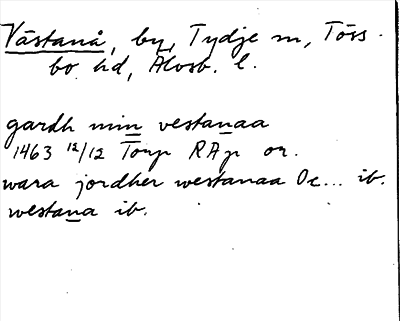 Västanå, by, Tydje sn, Töss-
bo hd, Älvsb. l.
gardh min vestanaa
1463 12/12 Torp RAp or.
wara jordher westanaa Oc... ib.
westana ib.